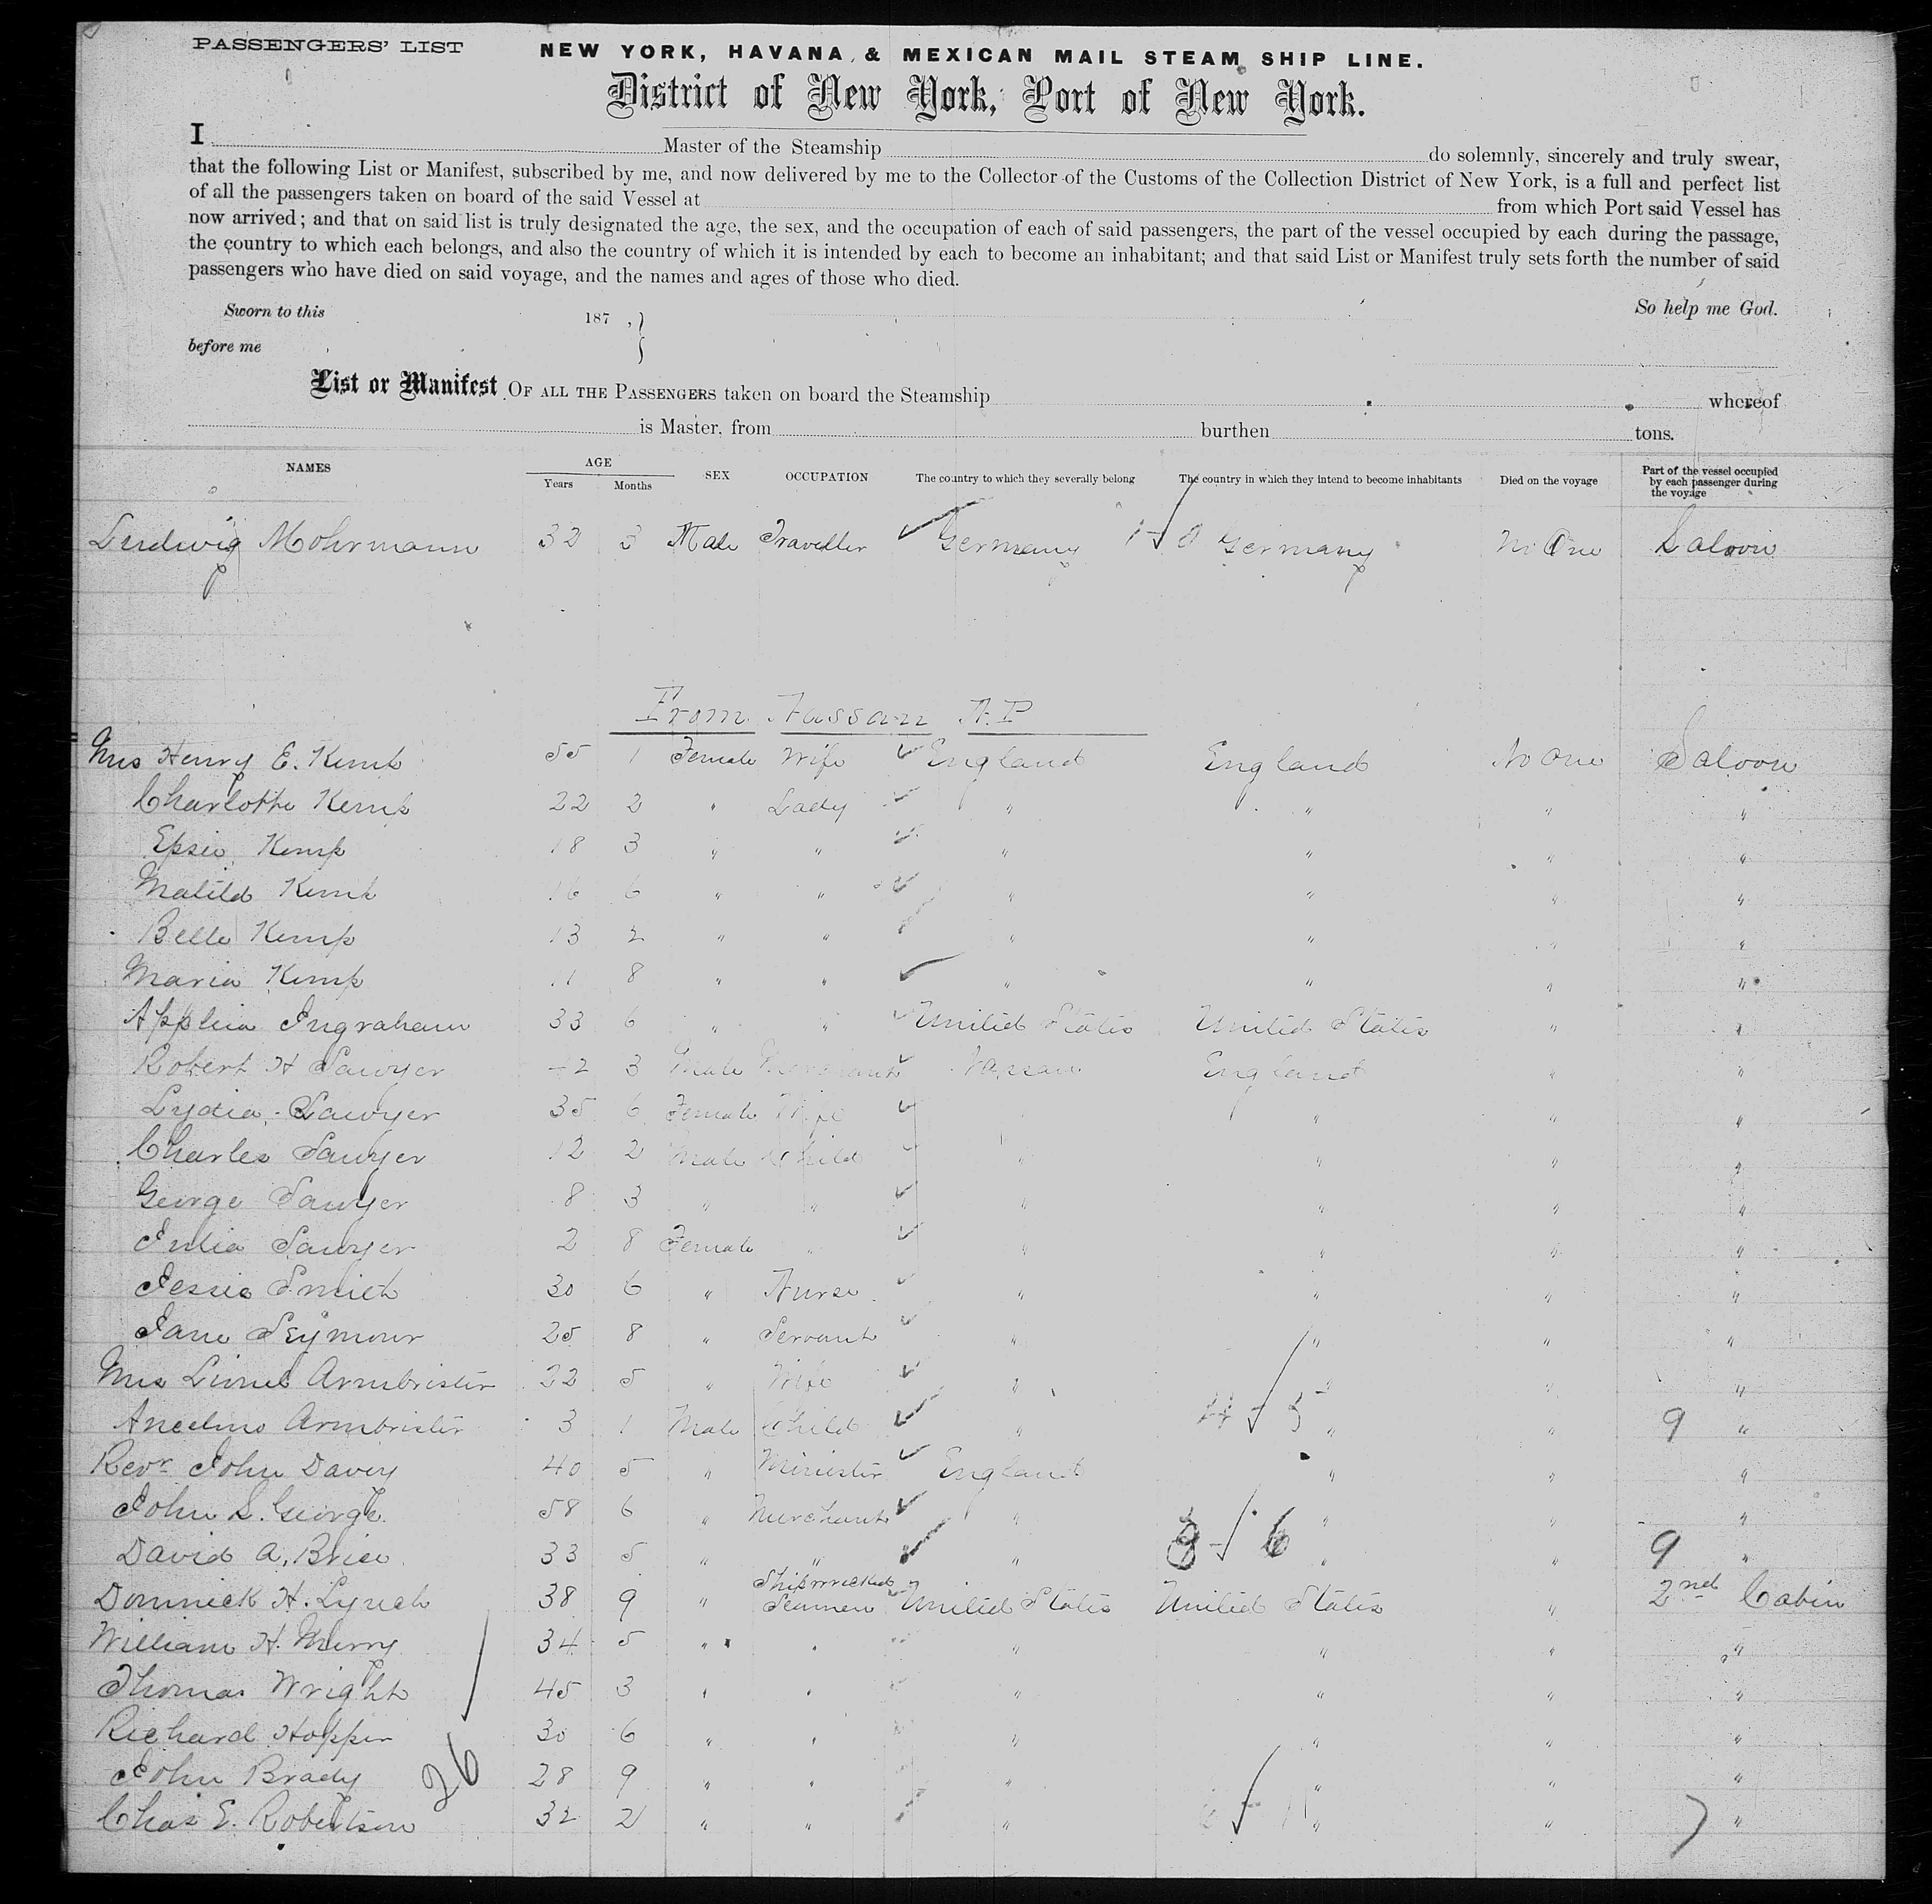 PASSENGERS' LIST
NEW YORK, HAVANA, & MEXICAN MAIL STEAM SHIP LINE.
District of New York, Port of New York.
I Master of the Steamship do solemnly, sincerely and truly swear,
that the following List or Manifest, subscribed by me, and now delivered by me to the Collector of the Customs of the Collection District of New York, is a full and perfect list
of all the passengers taken on board of the said Vessel at from which Port said Vessel has
now arrived; and that on said list is truly designated the age, the sex, and the occupation of each of said passengers, the part of the vessel occupied by each during the passage,
the country to which each belongs, and also the country of which it is intended by each to become an inhabitant; and that said List or Manifest truly sets forth the number of said
passengers who have died on said voyage, and the names and ages of those who died.
Sworn to this 187 , } So help me God.
before me
List or Manifest OF ALL THE PASSENGERS taken on board the Steamship whereof
is Master, from burthen tons.
NAMES AGE Years Months SEX OCCUPATION The country to which they severally belong The country in which they intend to become inhabitants Died on the voyage Part of the vessel occupied by each passenger during the voyage
Ludwig Mohrmann 32 3 Male Traveller Germany Germany No One Saloon
From Nassau N.P
Mrs Henry E. Kemp 55 1 Female Wife England England No One Saloon
Charlotte Kemp 22 2 " Lady " " " "
Epsie Kemp 18 3 " " " " " "
Matild Kemp 16 6 " " " " " "
Belle Kemp 13 2 " " " " " "
Maria Kemp 11 8 " " " " " "
Applia Ingraham 33 6 " " United States United States " "
Robert H Sawyer 42 3 Male Merchant Nassau England " "
Lydia Sawyer 35 6 Female Wife " " "
Charles Sawyer 12 2 Male Child " " " "
George Sawyer 8 3 " " " " " "
Julia Sawyer 2 8 Female " " " " "
Jessie Smith 30 6 " Nurse " " " "
Jane Seymour 25 8 " Servant " " " "
Mrs Lionel Armbrister 22 5 " Wife " " " "
Ancelmo Armbrister 3 1 Male Child " " " 9 "
Revr John Davey 40 5 " Minister England " " "
John S. George 58 6 " Merchant " " " "
David A. Brice 33 5 " " " " " 9 "
Dominick H. Lynch 38 9 " Shipwrecked Seamen United States United States " 2nd Cabin
William H. Merry 34 5 " " " " " "
Thomas Wright 45 3 " " " " " "
Richard Hopper 30 6 " " " " " "
John Brady 28 9 " " " " " "
26
Chas E. Robertson 32 2 " " " " " "